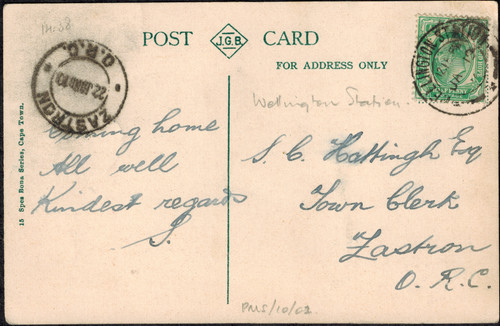 14.38
POST J.G.B. CARD
FOR ADDRESS ONLY
WELLINGTON STATION
PENNY
ZASTRON
O.R.C.
22
10
Wellington Station.
15 Spes Bona Series, Cape Town.
Coming home
All well
Kindest regards
S.
S. C. Hattingh Esq
Town Clerk
Zastron
O. R. C.
PMS/10/02